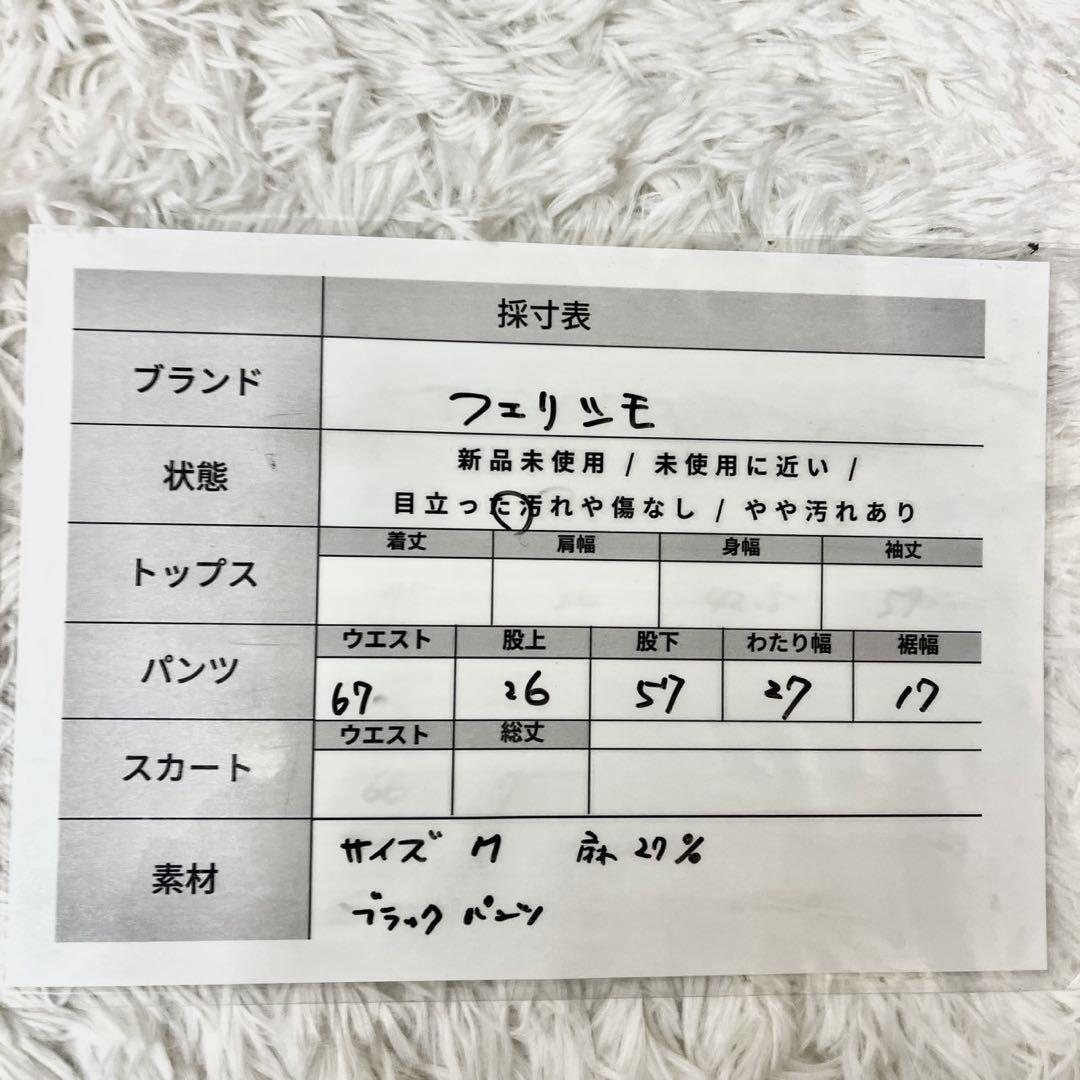 採寸表
ブランド
フェリシモ
状態
新品未使用 / 未使用に近い /
目立った汚れや傷なし / やや汚れあり
トップス
着丈 肩幅 身幅 袖丈
パンツ
ウエスト 股上 股下 わたり幅 裾幅
67 26 57 27 17
スカート
ウエスト 総丈
素材
サイズ M 麻 27%
ブラック パンツ